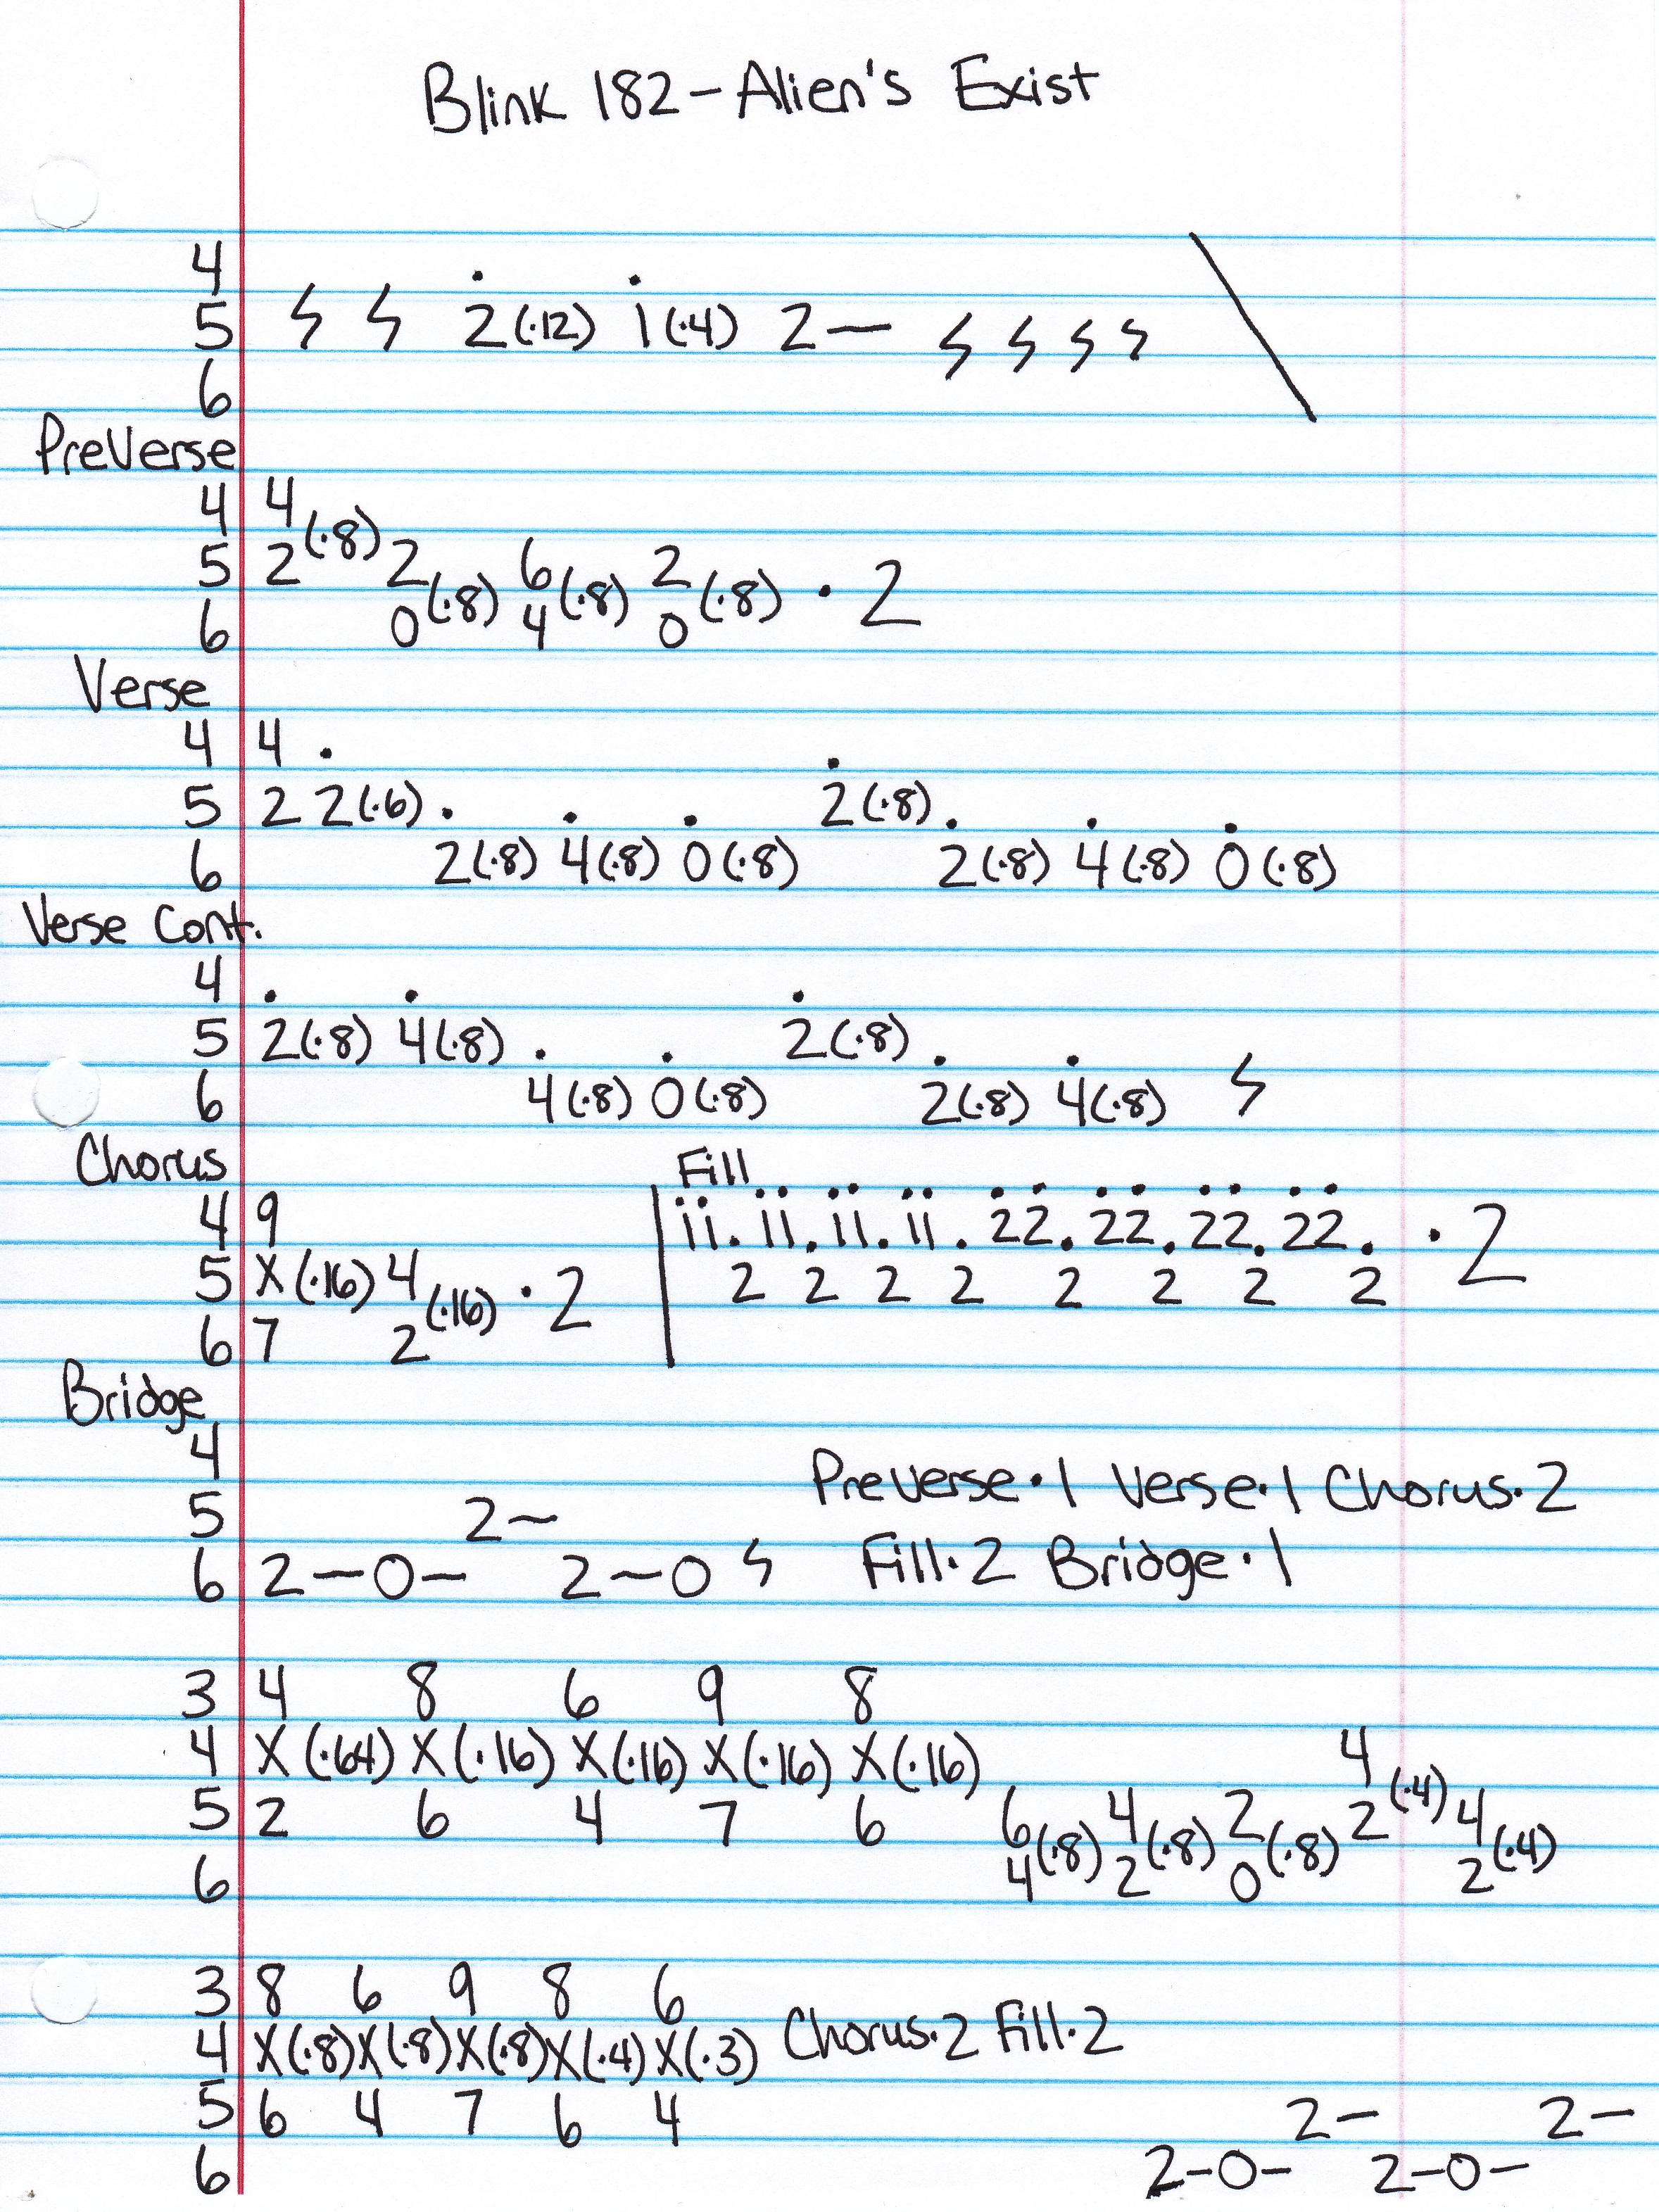 Blink 182 - Alien's Exist
4
5 ϟ ϟ 2(·12) 1(·4) 2— ϟ ϟ ϟ ϟ \
6
PreVerse
4 4
5 2(·8) 2 6 2
6 0(·8) 4(·8) 0(·8) · 2
Verse
4 4 .
5 2 2(·6) 2(·8)
6 2(·8) 4(·8) 0(·8) 2(·8) 4(·8) 0(·8)
Verse Cont.
4
5 2(·8) 4(·8) 2(·8)
6 4(·8) 0(·8) 2(·8) 4(·8) ϟ
Chorus Fill
4 9 ii. ii. ii. ii. 22. 22. 22. 22. · 2
5 X(·16) 4 · 2 2 2 2 2 2 2 2 2
6 7 2(·16)
Bridge
4
PreVerse·1 Verse·1 Chorus·2
5 2~
6 2—0— 2~0 ϟ Fill·2 Bridge·1
3 4 8 6 9 8
4 X(·64) X(·16) X(·16) X(·16) X(·16) 4
5 2 6 4 7 6 6 4 2 2(·4) 4
6 4(·8) 2(·8) 0(·8) 2(·4)
3 8 6 9 8 6
4 X(·8) X(·8) X(·8) X(·4) X(·3) Chorus·2 Fill·2
5 6 4 7 6 4 2— 2—
6 2-0- 2-0-